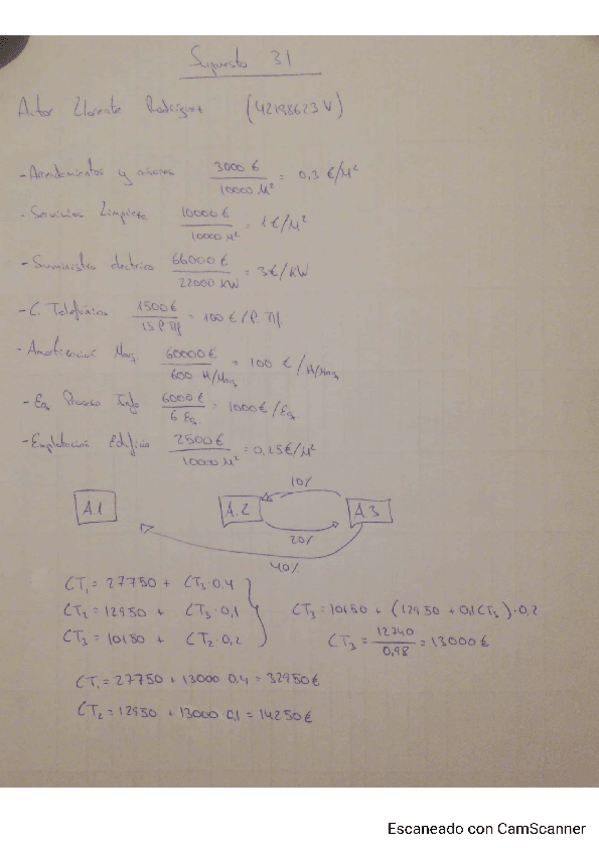 Supuesto 31
Aitor Llorente Rodríguez (42198623V)
- Arrendamientos y cánones 3000 € / 10000 M² = 0,3 €/M²
- Servicios Limpieza 10000 € / 10000 M² = 1 €/M²
- Suministro eléctrico 66000 € / 22000 KW = 3€/KW
- C. Telefónicos 1500€ / 15 P. Tlf = 100 € / P. Tlf
- Amortización Maq. 60000 € / 600 H/Maq = 100 € / H/Maq
- Eq. Proceso Info 6000 € / 6 Eq = 1000€ / Eq
- Explotación Edificio 2500 € / 10000 M² = 0,25€/M²
10%
A.1 A.2 A.3
20%
40%
CT₁ = 27750 + CT₃·0,4
CT₂ = 12950 + CT₃·0,1
CT₃ = 10150 + (12950 + 0,1CT₃)·0,2
CT₃ = 10150 + CT₂·0,2
CT₃ = 12740 / 0,98 = 13000€
CT₁ = 27750 + 13000·0,4 = 32950€
CT₂ = 12950 + 13000·0,1 = 14250€
Escaneado con CamScanner